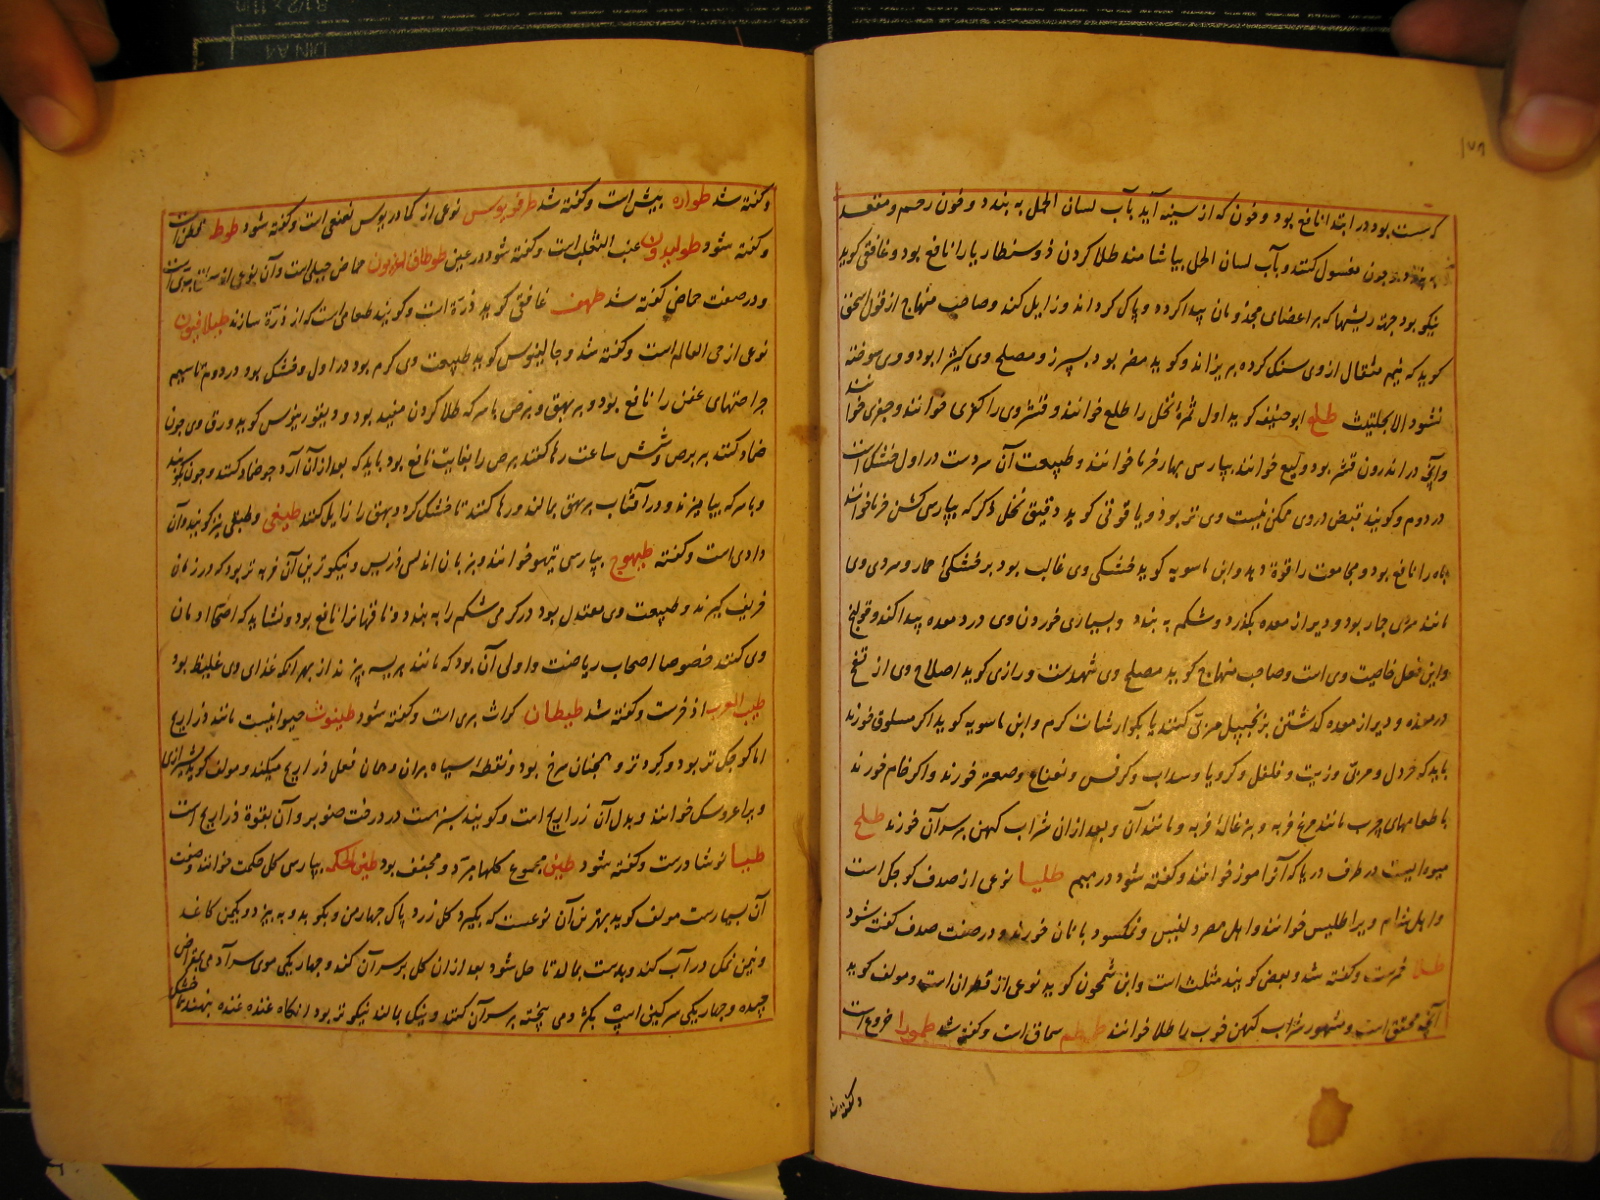 کرست بود در ابتدا نافع بود و خون که از سینه آید بآب لسان الحمل به بندد و خون رحم و مقعد
چون مغسول کنند و بآب لسان الحمل بیاشامند طلا کردن ذوسنطاریا را نافع بود و غافقی کوید
نیکو بود جهت ریشها که بر اعضای مجذومان پیدا کرده و پاک کرداند و زایل کند و صاحب منهاج از قول اسحق
کوید که نیم مثقال از وی سنک کرده بریزاند و کوید مضر بود بسپرز و مصلح وی کثیرا بود و وی سوخته
نشود الا بحیلت طلع ابوحنیفه کوید اول ثمرهٔ نخل را طلع خوانند و قشر وی را کفری خوانند و جفری خوانند
و آنچه در اندرون قشر بود ولیع خوانند بپارسی بهار خرما خوانند و طبیعت آن سردست در اول خشک است
در دوم و کویند قبض در وی ممکن نیست وی تر بود و یاقوتی کوید دقیق نخل ذکر که بپارسی کشن خرما خوانند
باه را نافع بود و مجامعت را قوة دهد و ابن ماسویه کوید خشکی وی غالب بود بر خشکی جمار و سردی وی
مانند سردی جمار بود و دیر از معده بکذرد و شکم به بندد و بسیاری خوردن وی درد معده پیدا کند و قولنج
و این فعل خاصیت وی است و صاحب منهاج کوید مصلح وی شهدست و رازی کوید اصلاح وی از نفخ
در معده و دیر از معده کذشتن بزنجبیل مربی کنند یا بجوارشات کرم و ابن ماسویه کوید اکر مسلوق خورند
باید که خردل و مری و زیت و فلفل و کرویا و سداب و کرفس و نعناع و صعتر خورند و اکر خام خورند
با طعامهای چرب مانند مرغ فربه و بزغالهٔ فربه و مانند آن و بعد از آن شراب کهن بر سر آن خورند طلح
میوه ایست در طرف دریا که آنرا موز خوانند و کفته شود در میم طلیا نوعی از صدف کوچک است
و اهل شام ویرا طلیس خوانند و اهل مصر دلینس و نمکسود با نان خورند و در صفت صدف کفته شود
طلا خمرست و کفته شد و بعضی کویند مثلث است و ابن سمحون کوید نوعی از قطران است و مولف کوید
آنچه محقق است و مشهور شراب کهن خوب را طلا خوانند طمطم سماق است و کفته شد طمورا خروع است
وکفته شد
و کفته شد طواره بیش است و کفته شد طرفوریوس نوعی از کمادریوس نعنعی است و کفته شود طوط قطن است
و کفته شود طولیدون عنب الثعلب است و کفته شود در عین طوطاق اغریون حماض جبلی است و آن نوعی از سلق بری است
و در صفت حماض کفته شد طهف غافقی کوید ذرة است و کویند طعامی است که از ذرة سازند طیلافیون
نوعی از حی العالم است و کفته شد و جالینوس کوید طبیعت وی کرم بود در اول و خشک بود در دوم تا سیم
جراحتهای عفن را نافع بود و بر بهق و برص با سرکه طلا کردن مفید بود و دیقوریدوس کوید ورق وی چون
ضماد کنند بر برص و شش ساعت رها کنند برص را بغایت نافع بود باید که بعد از آن آرد جو ضماد کنند و چون بکوبند
و با سرکه بیامیزند و در آفتاب بر بهق بمالند و رها کنند تا خشک کردد بهق را زایل کنند طیفی و طیفلی نیز کویند و آن
دادی است و کفته طیهوج بپارسی تیهو خوانند و بزبان اندلسی فریس و نیکوترین آن فربه تر بود که در زمان
خریف کیرند و طبیعت وی معتدل بود در کرمی شکم را به بندد و ناقهانرا نافع بود و نشاید که اصحا ادمان
وی کنند خصوصا اصحاب ریاضت و اولی آن بود که مانند هریسه پزند از بهر آنکه غذای وی غلیظ بود
طیب العرب اذخرست و کفته شد طیطان کراث بری است و کفته شود طینوث حیوانیست مانند ذراریح
اما کوچک تر بود و کردتر و همچنان سرخ بود و نقطهاء سیاه بر آن و همان فعل ذراریح میکند و مولف کوید بشیرازی
ویرا عروسک خوانند و بدل آن ذراریح است و کویند سبز هست در درخت صنوبر و آن بقوة ذراریح است
طیبا نوشادرست و کفته شود طین مجموع کلها مبرد و مجفف بود طین الحکمه بپارسی کل حکمت خوانند و صفت
آن بسیارست مولف کوید بهترین آن نوعست که بکیرد کل زرد پاک چهار من و بکوبد و به بیزد و یکمن کاغذ
و نیمن نمک در آب کند و بدست بمالد تا حل شود بعد از آن کل بر سر آن کند و چهار یکی موی سر آدمی بمقراض
چیده و چهار یکی سرکین اسپ بکر و می بیخته بر سر آن کنند و نیک بمالند نیکوتر بود آنکاه غنده غنده بنهند تا خشک